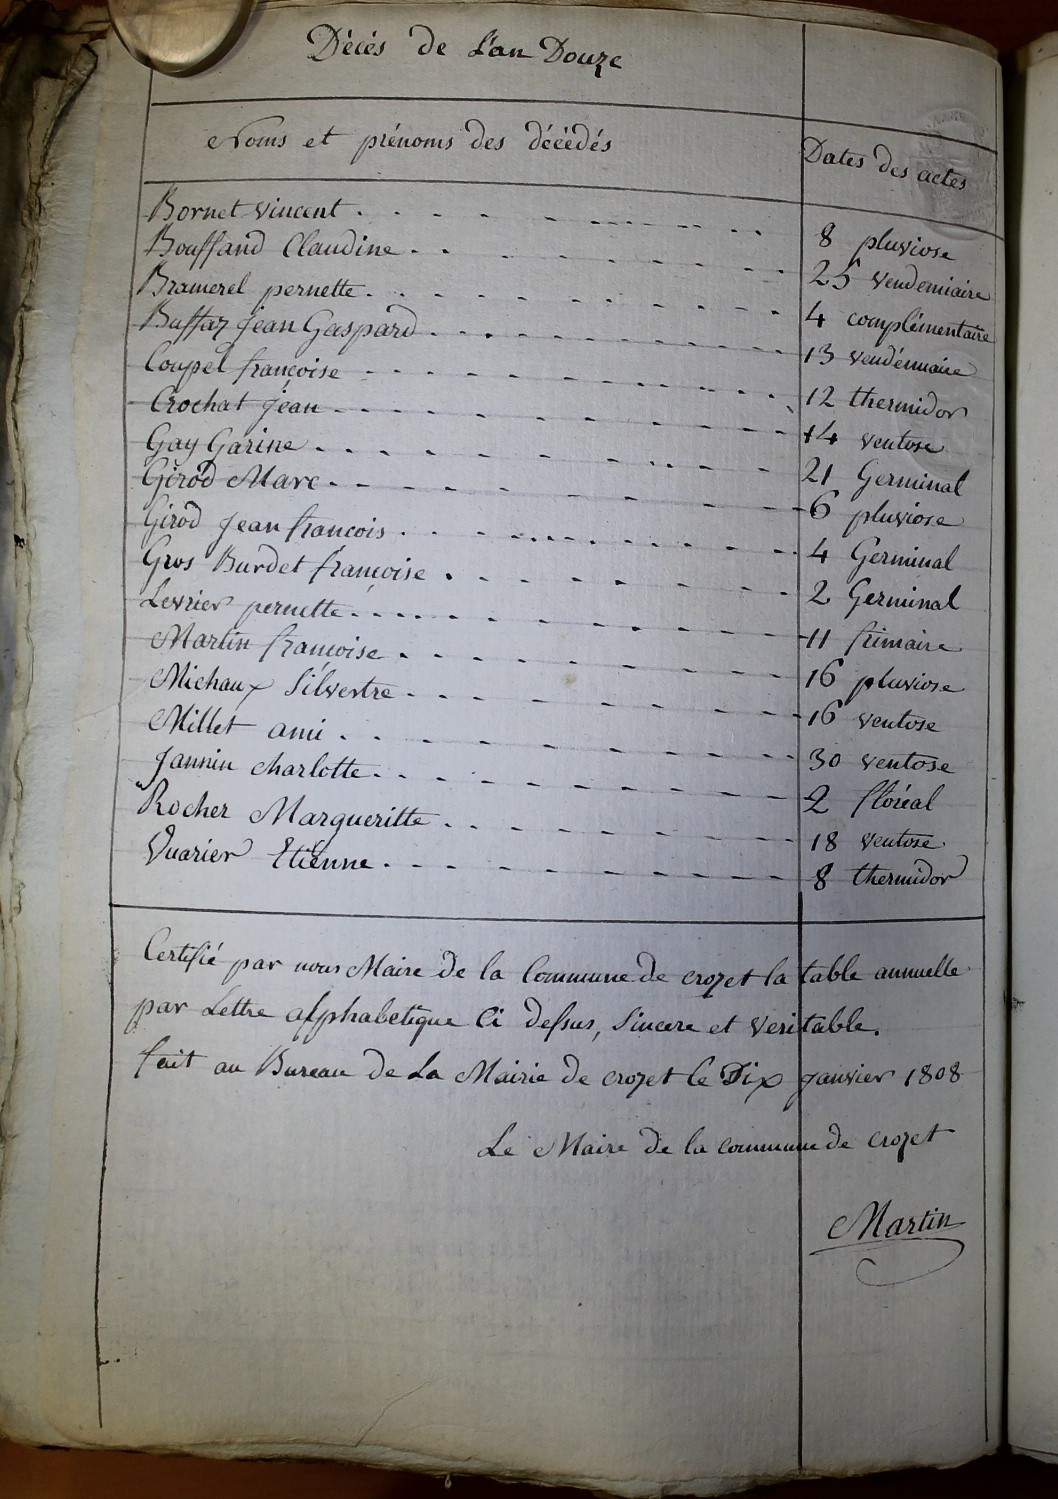 Décés de L'an Douze
Noms et prénoms des décédés Dates des actes
Bornet Vincent 8 pluviose
Bouffand Claudine 25 vendemiaire
Bramerel pernette 4 complémentaire
Buffaz Jean Gaspard 13 vendémiaire
Coupel francoise 12 thermidor
Crochat Jean 14 ventose
Gay Garine 21 Germinal
Girod Marc 6 pluviose
Girod Jean francois 4 Germinal
Gros Burdet françoise 2 Germinal
Levrier pernette 11 frimaire
Martin françoise 16 pluviose
Michaux Silvestre 16 ventose
Millet ami 30 ventose
Jannin charlotte 2 floréal
Rocher Margueritte 18 ventose
Vuarier Etiénne 8 thermidor
Certifié par nous Maire de la Commune de crozet la table annuelle
par Lettre alphabetique Ci dessus, Sincere et veritable.
fait au Bureau de La Mairie de crozet le Dix janvier 1808
Le Maire de la commune de crozet
Martin